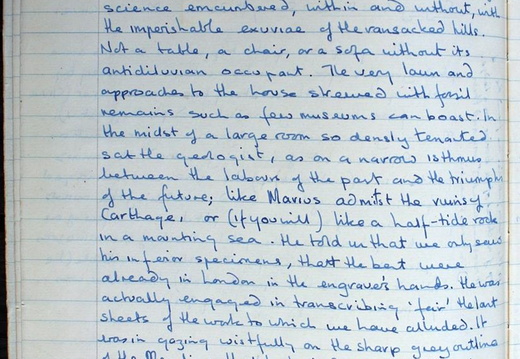 science encumbered, within and without, with
the imperishable exuviae of the ransacked hills.
Not a table, a chair, or a sofa without its
antidiluvian occupant. The very lawn and
approaches to the house strewed with fossil
remains such as few museums can boast. In
the midst of a large room so densly tenanted
sat the geologist, as on a narrow isthmus
between the labours of the past and the triumphs
of the future; like Marius admist the ruins of
Carthage, or (if you will) like a half-tide rock
in a mounting sea. He told us that we only saw
his inferior specimens, that the best were
already in London in the engraver's hands. He was
actually engaged in transcribing 'fair' the last
sheets of the work to which we have alluded. It
was in gazing wistfully on the sharp grey outline
of the